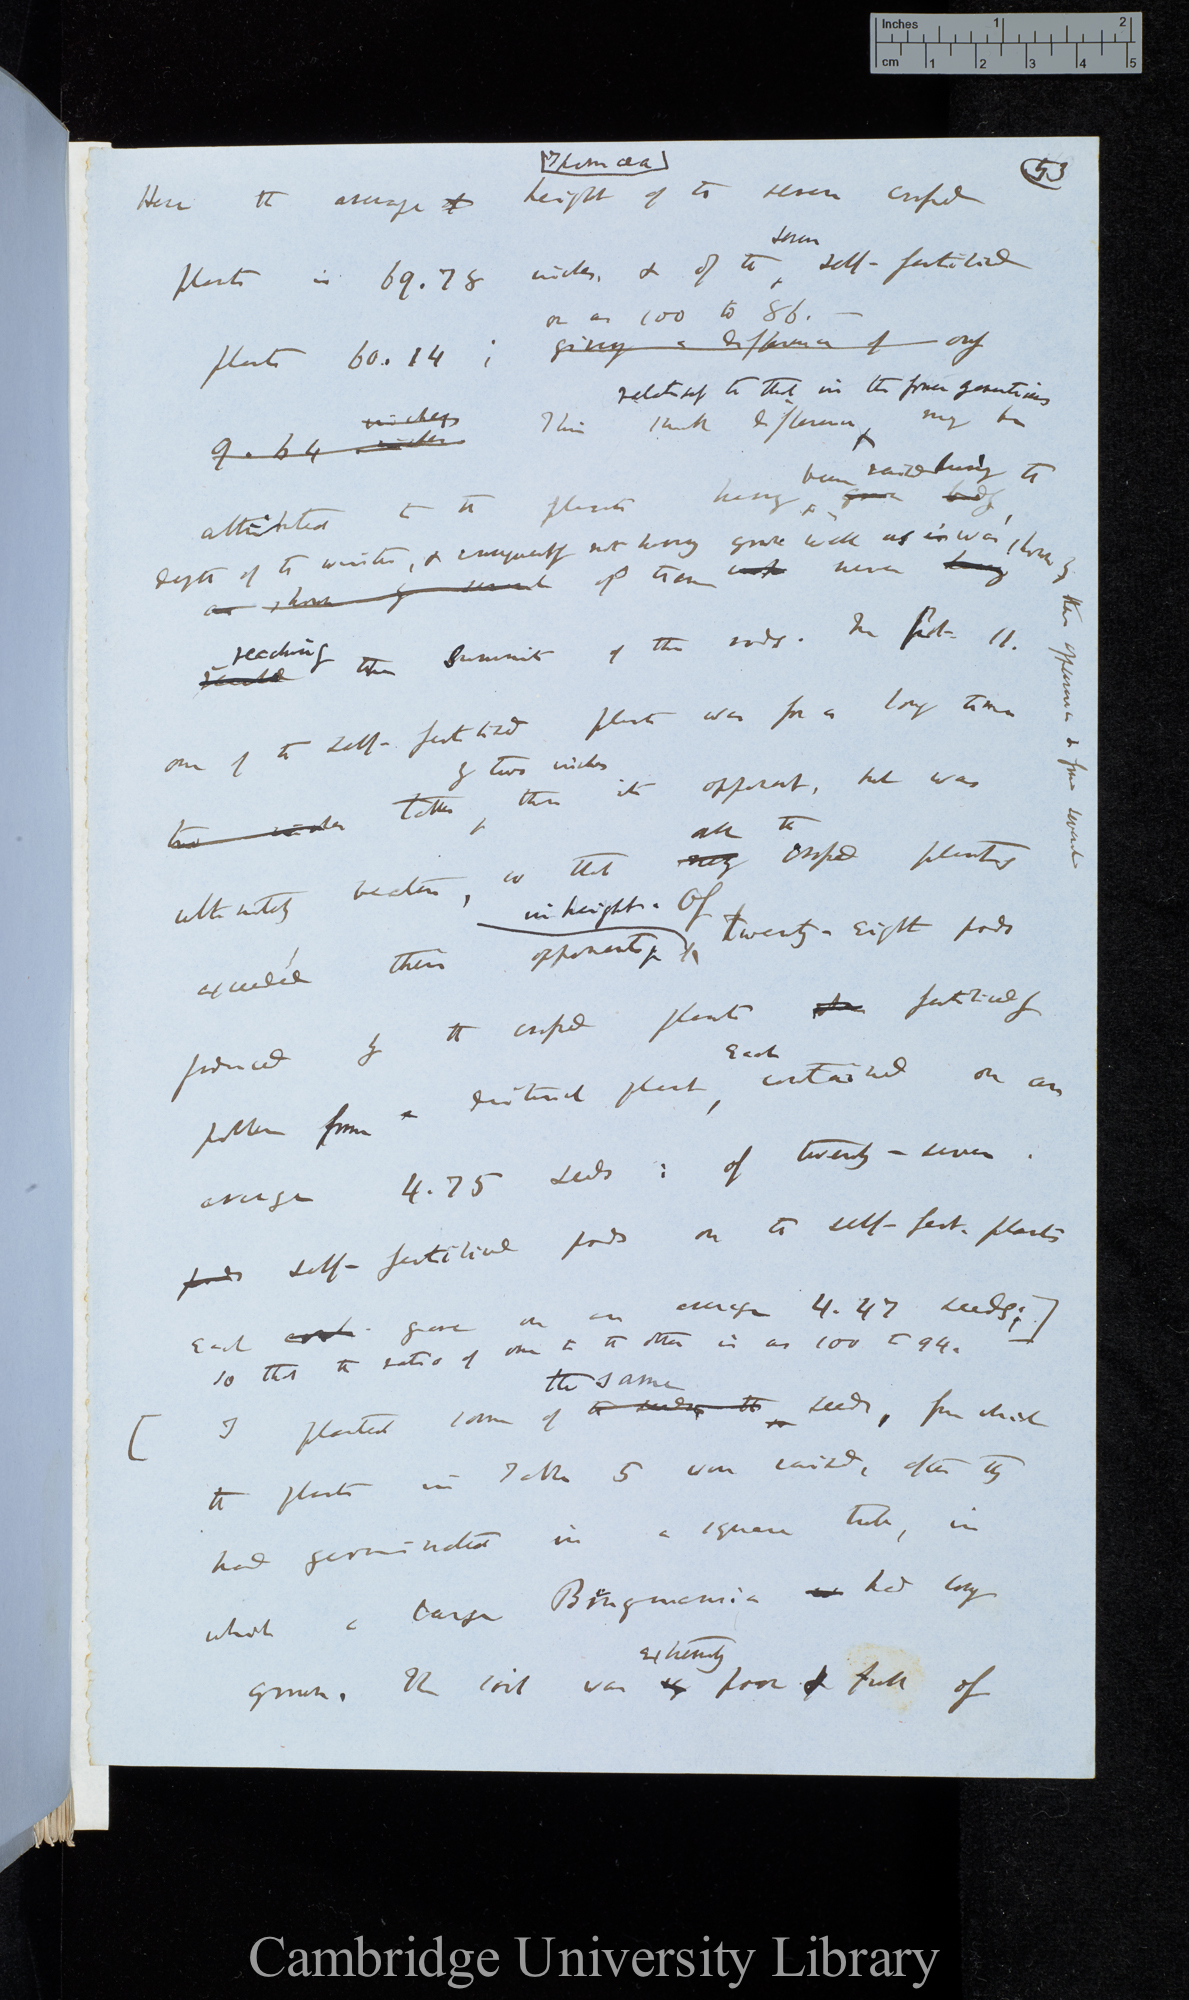 Inches 1 2
cm 1 2 3 4 5
[Ipomœa]
53
Here the average height of the seven crossed
seven
plants is 69.78 inches, & of the self-fertilised
or as 100 to 86. —
plants 60.14 ; giving a difference of only
relatively to that in the former generations
inches
9.64 inches This small difference, may be
been raised during the
attributed to the plants having
depth of the winter, & consequently not having grown well as was shown by
their appearance & from several
as shown by several of them never being
reaching the summits of the rods. In Pot II.
one of the self-fertilised plants was for a long time
by two inches
two inches taller than its opponent, but was
all the
ultimately beaten, so that crossed plants
in height. Of
exceeded their opponents twenty-eight pods
produced by the crossed plants fertilised by
each
pollen from a distinct plant, contained on an
average 4.75 seeds : of twenty-seven
pods self-fertilised pods on the self-fert. plants
each gave on an average 4.47 seeds; ]
so that the ratio of one to the other is as 100 to 94.
the same
[ I planted some of the seeds, from which
the plants in Table 5 were raised, after they
had germinated in a square tub, in
which a large Brugmansia had long
extremely
grown. The soil was poor & full of
Cambridge University Library